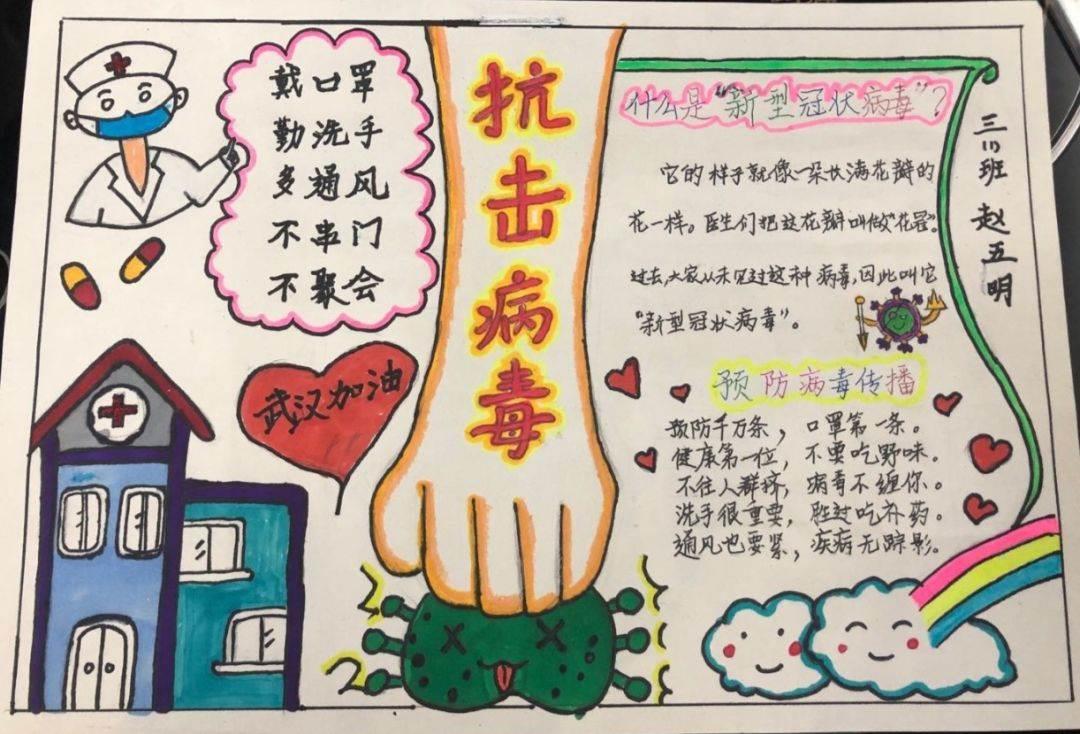 戴口罩
勤洗手
多通风
不串门
不聚会
武汉加油
抗击病毒
什么是“新型冠状病毒”?
它的样子就像一朵长满花瓣的
花一样。医生们把这花瓣叫做“花冠”。
过去,大家从未见过这种病毒,因此叫它
“新型冠状病毒”。
预防病毒传播
预防千万条,口罩第一条。
健康第一位,不要吃野味。
不往人群挤,病毒不缠你。
洗手很重要,胜过吃补药。
通风也要紧,疾病无踪影。
三(1)班 赵五明